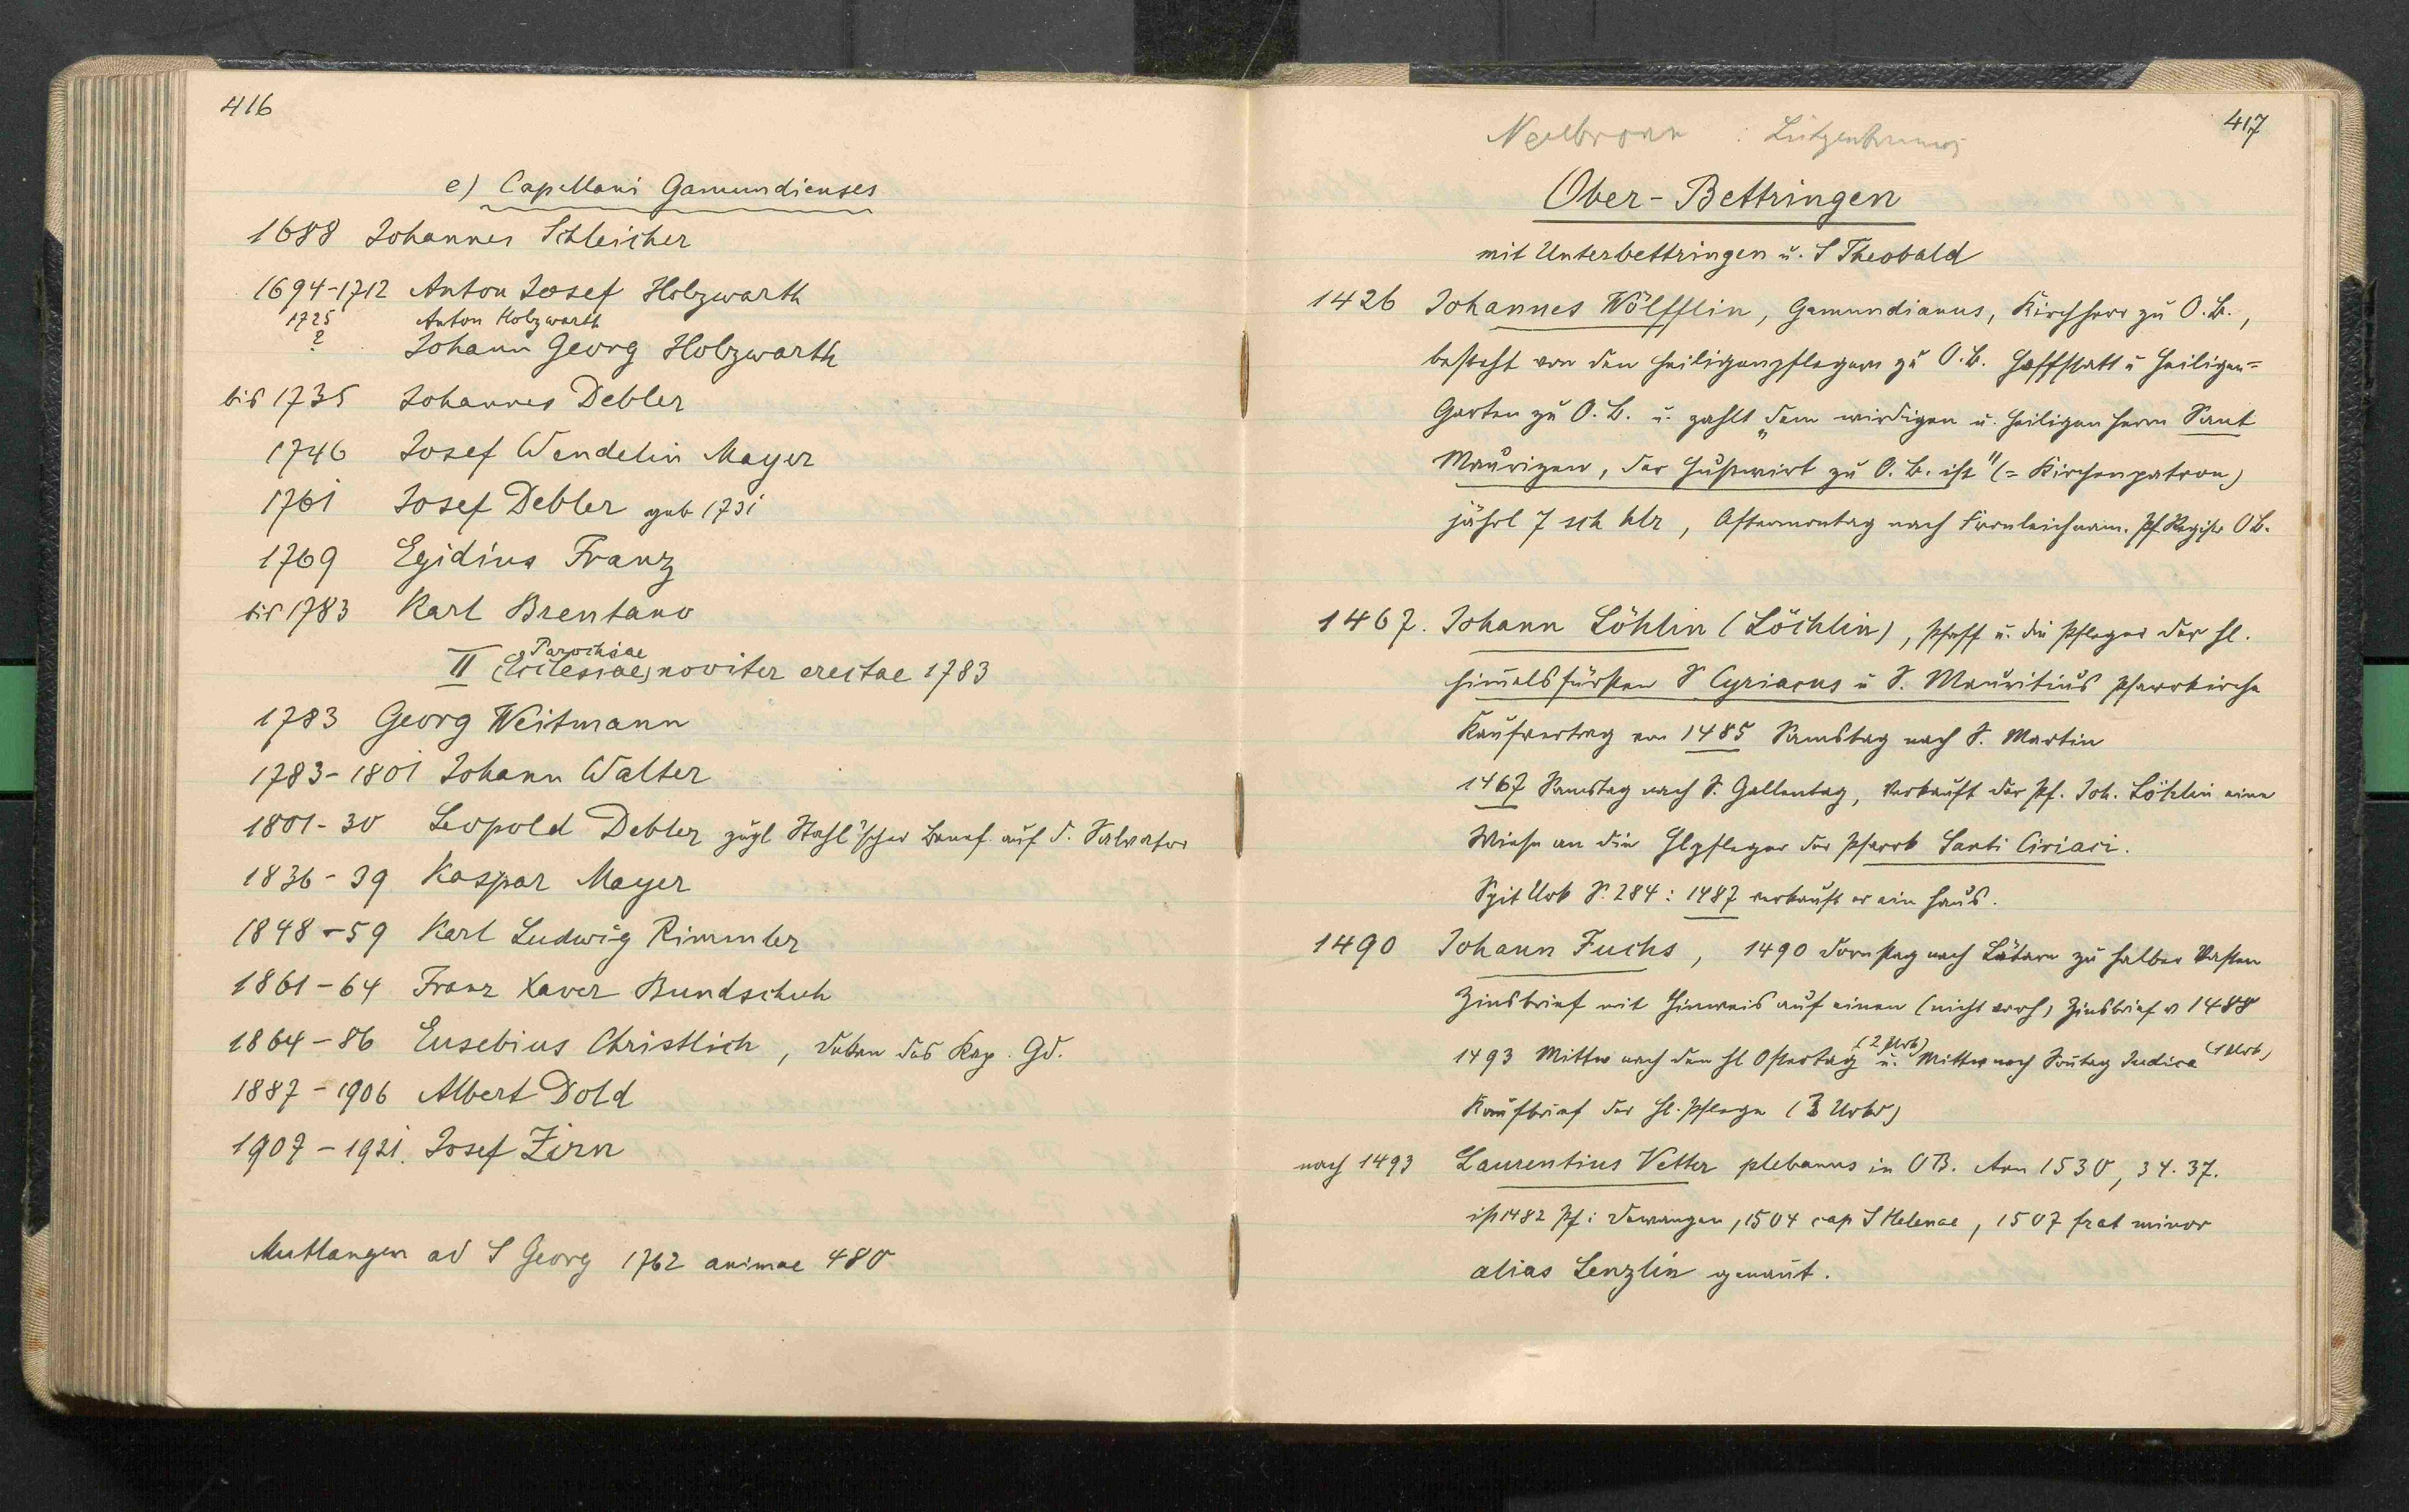 416
e) Capellani Gamundienses
1688 Johannes Schleicher
1694-1712 Anton Josef Holzwarth
1725 Anton Holzwarth
? Johann Georg Holzwarth
bis 1735 Johannes Debler
1746 Josef Wendelin Mayer
1761 Josef Debler geb 1731
1769 Egidius Franz
bis 1783 Karl Brentano
Parochiae
II (Ecclesiae) noviter erectae 1783
1783 Georg Weitmann
1783-1801 Johann Walter
1801-30 Leopold Debler zugl Stahl'scher Benef. auf d. Salvator
1836-39 Kaspar Mayer
1848-59 Karl Ludwig Rimmler
1861-64 Franz Xaver Bundschuh
1864-86 Eusebius Christlich, Dekan des Kap. Gd.
1887-1906 Albert Dold
1907-1921. Josef Zirn
Mutlangen ad S Georg 1762 animae 480
417
Ober-Bettringen
mit Unterbettringen u. S Theobald
1426 Johannes Wölfflin, Gamundianus, Kirchherr zu O.B.,
besteht von den Heiligenpflegern zu O.B. Hoffstatt u Heiligen=
Garten zu O.B. u. zahlt „dem wirdigen u. heiligen Herrn Sant
Maurizen, der Hußwirt zu O.B. ist" (= Kirchenpatron)
jährl 7 sch hlr, Aftermontag nach Fronleichnam. Pf Regist OB.
1467. Johann Löhlin (Löchlin), Pfaff u. die Pfleger der hl.
Himelsfürsten S Cyriacus u S. Mauritius Pfarrkirche
Kaufvertrag von 1485 Samstag nach S. Martin
1467 Samstag nach S. Gallentag, verkauft der Pf. Joh. Löhlin eine
Wiese an die Hlpfleger der Pfarrk Santi Ciriaci.
Spit Urk S. 284: 1487 verkauft er ein Haus.
1490 Johann Fuchs, 1490 Dornstag nach Lätare zu halber Vasten
Zinsbrief mit Hinweis auf einen (nicht vorh) Zinsbrief v 1488
1493 Mittw nach dem hl Ostertag (2 Urk) u. Mittw nach Sontag Judica (1 Urk)
Kaufbrief der hl. Pflege (3 Urk)
nach 1493 Laurentius Vetter plebanus in OB. Ann 1530, 34. 37.
ist 1482 Pf i Dewangen, 1504 cap S Helenae, 1507 frat minor
alias Lenzlin genant.